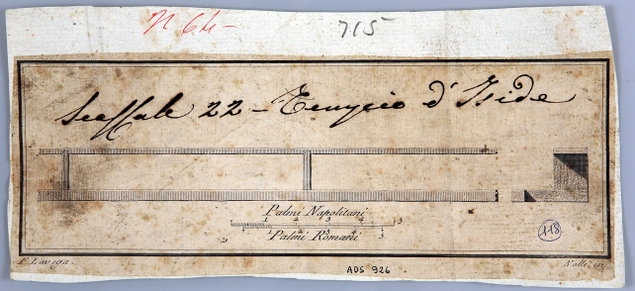 N 64-
715
Scaffale 22 - Tempio d'Iside
Palmi Napolitani
1 2 3 4 5
Palmi Romani
1 2 3 4 5
118
F. Lavega.
Nolli in.
ADS 926